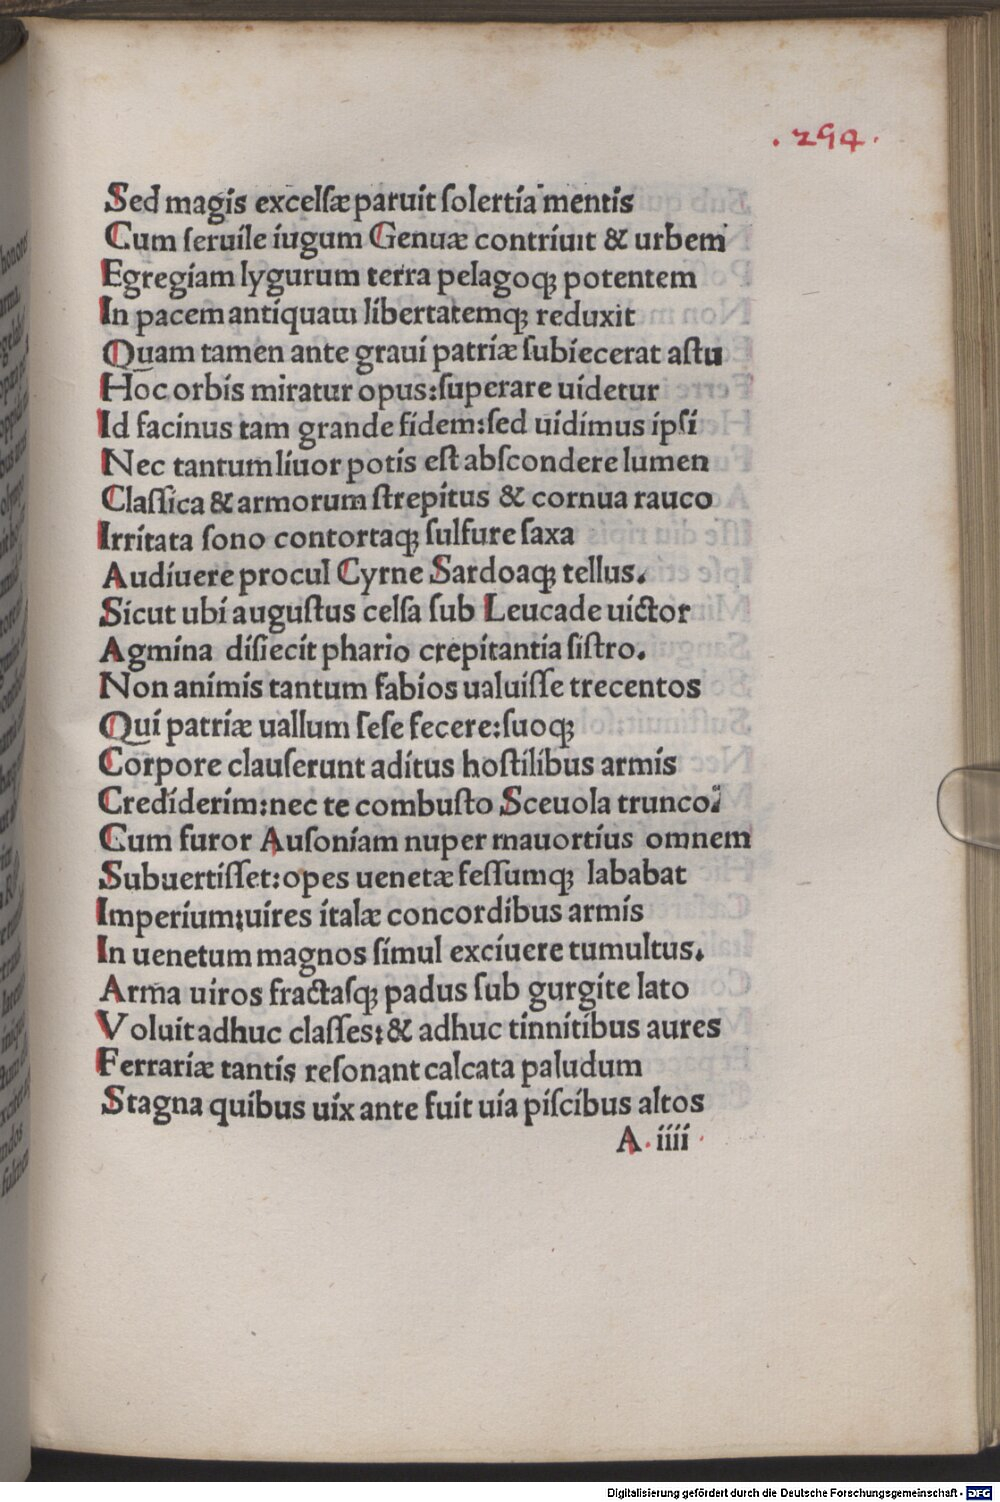 . 294 .
Sed magis excelſæ paruit ſolertia mentis
Cum ſeruile iugum Genuæ contriuit & urbem
Egregiam lygurum terra pelagoqꝫ potentem
In pacem antiquam libertatemqꝫ reduxit
Quam tamen ante graui patriæ ſubiecerat aſtu
Hoc orbis miratur opus:ſuperare uidetur
Id facinus tam grande fidem:ſed uidimus ipſi
Nec tantum liuor potis eſt abſcondere lumen
Claſſica & armorum ſtrepitus & cornua rauco
Irritata ſono contortaqꝫ ſulfure ſaxa
Audiuere procul Cyrne Sardoaqꝫ tellus.
Sicut ubi auguſtus celſa ſub Leucade uictor
Agmina diſiecit phario crepitantia ſiſtro.
Non animis tantum fabios ualuiſſe trecentos
Qui patriæ uallum ſeſe fecere:ſuoqꝫ
Corpore clauſerunt aditus hoſtilibus armis
Crediderim:nec te combuſto Sceuola trunco.
Cum furor Auſoniam nuper mauortius omnem
Subuertiſſet:opes uenetæ feſſumqꝫ lababat
Imperium:uires italæ concordibus armis
In uenetum magnos ſimul exciuere tumultus.
Arma uiros fractaſqꝫ padus ſub gurgite lato
Voluit adhuc claſſes:& adhuc tinnitibus aures
Ferrariæ tantis reſonant calcata paludum
Stagna quibus uix ante fuit uia piſcibus altos
A. iiii
Digitalisierung gefördert durch die Deutsche Forschungsgemeinschaft - DFG